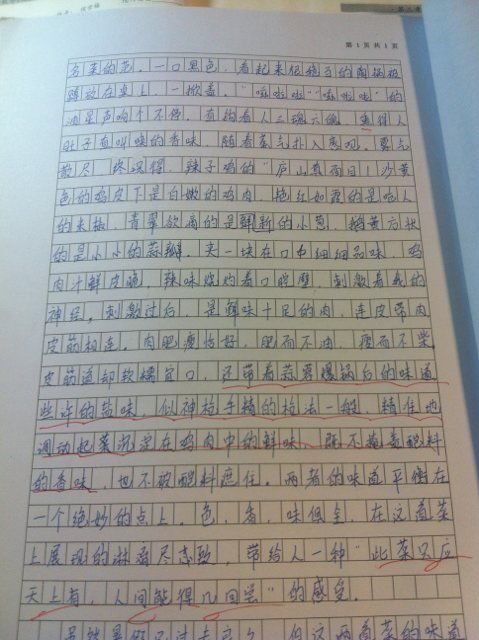 第 1 页 共 1 页
多菜的范。一口黑色，看起来很稳子的
蹲放在桌上，一掀盖，“嘛啦啦”“嘛啦啦”的
油星声响个不停，直钩着人三魂六魄，惹得人
肚子直叫唤的香味，随着蒸气扑入鼻观。雾气
散尽，终识得，辣子鸡的“庐山真面目”！沙黄
色的鸡皮下是白嫩的鸡肉，艳红如霞的是呛人
的米椒，青翠欲滴的是鲜新的小葱，鹅黄方状
的是小小的蒜瓣。夹一块在口中细细品味，鸡
肉汁鲜皮脆，辣味灼灼着口腔壁，刺激着我的
神经。刺激过后，是鲜味十足的肉，连皮带肉
皮筋相连。肉肥瘦恰好，肥而不油，瘦而不柴
皮筋道却软糯宜口，还带着蒜蓉爆锅后的味道
些许的盐味，似神枪手精的枪法一般，精准地
调动起菜沉淀在鸡肉中的鲜味、既不掩盖配料
的香味，也不被配料遮住。两者的味道平衡在
一个绝妙的点上。色，香，味俱全，在这道菜
上展现的淋漓尽志致，带给人一种“此菜只应
天上有，人间能得几回尝”的感受。
但这两道菜的味道